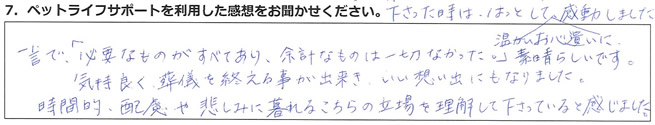 7. ペットライフサポートを利用した感想をお聞かせください。下さった時は、はっとして感動しました
温かいお心遣いに、
一言で、「必要なものがすべてあり、余計なものは一切なかった。」素晴らしいです。
気持良く葬儀を終える事が出来き、いい想い出にもなりました。
時間的、配慮や悲しみに暮れるこちらの立場を理解して下さっていると感じました。